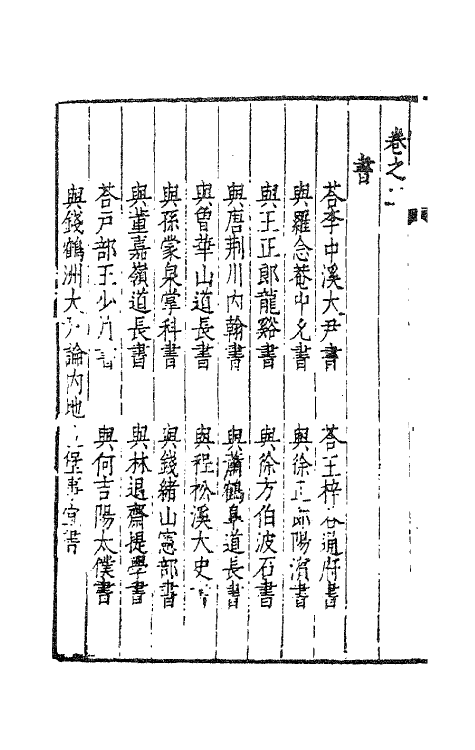 卷之
書
荅李中溪大尹書 荅王梓谷通府書
與羅念菴中允書 與徐正郎陽湖書
與王正郎龍谿書 與徐方伯波石書
與唐荆川內翰書 與蕭鶴臯道長書
與曾華山道長書 與程松溪大史
與孫蒙泉掌科書 與錢緒山憲部書
與董嘉嶺道長書 與林退齋提學書
荅戸部王少 書 與何吉陽太僕書
與錢鶴洲大 論內地 堡事宜書